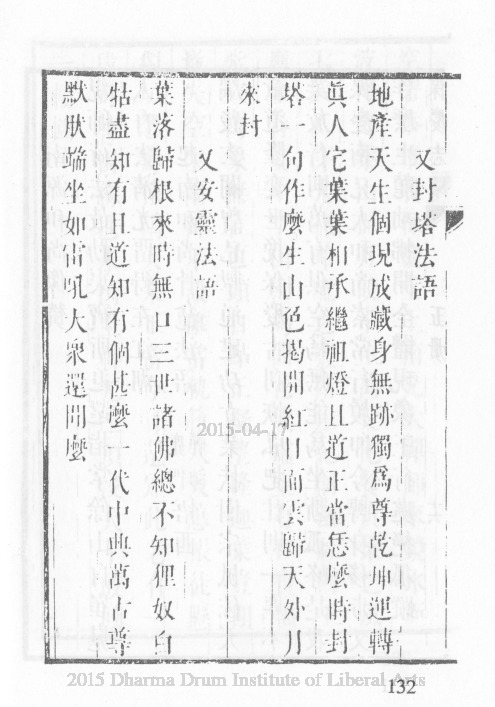 又封塔法語
地產天生個現成藏身無跡獨爲尊乾坤運轉
眞人宅葉葉相承繼祖燈且道正當恁麼時封
塔一句作麼生山色揭開紅日面雲歸天外月
來封
又安靈法語
葉落歸根來時無口三世諸佛總不知狸奴白
牯盡知有且道知有個甚麼一代中典萬古尊
默狀端坐如雷吼大衆還聞麼
2015-04-17
2015 Dharma Drum Institute of Liberal Arts
132